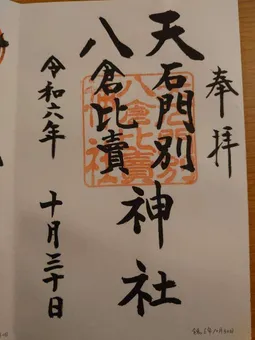 奉拝
天石門別
八倉比賣
神社
令和六年
十月三十日